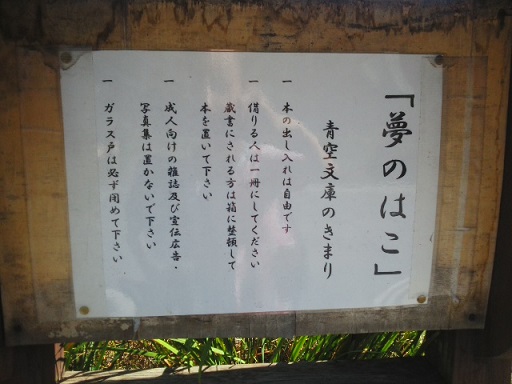 「夢のはこ」
青空文庫のきまり
一 本の出し入れは自由です
一 借りる人は一冊にしてください
蔵書にされる方は箱に整頓して
本を置いて下さい
一 成人向けの雑誌及び宣伝広告・
写真集は置かないで下さい
一 ガラス戸は必ず閉めて下さい